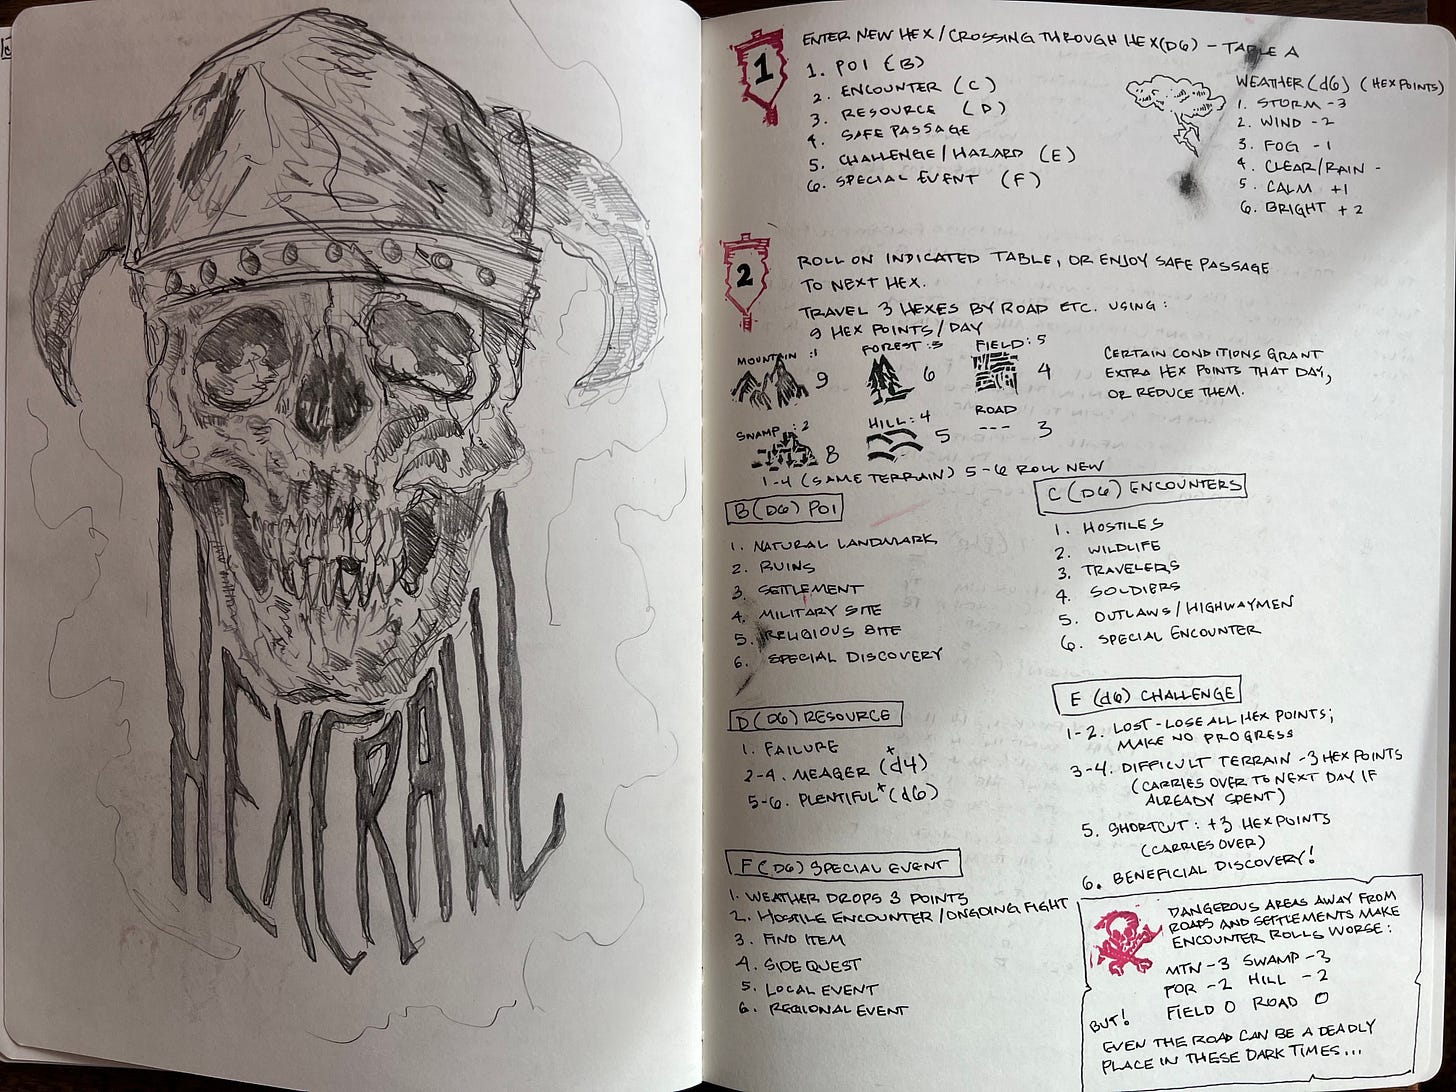 HEXCRAWL
1
ENTER NEW HEX/CROSSING THROUGH HEX(D6) - TABLE A
1. POI (B)
2. ENCOUNTER (C)
3. RESOURCE (D)
4. SAFE PASSAGE
5. CHALLENGE/HAZARD (E)
6. SPECIAL EVENT (F)
WEATHER (d6) (HEX POINTS)
1. STORM -3
2. WIND -2
3. FOG -1
4. CLEAR/RAIN -
5. CALM +1
6. BRIGHT +2
2
ROLL ON INDICATED TABLE, OR ENJOY SAFE PASSAGE
TO NEXT HEX.
TRAVEL 3 HEXES BY ROAD ETC. USING:
9 HEX POINTS/DAY
MOUNTAIN :1
9
FOREST :3
6
FIELD: 5
4
SWAMP : 2
8
HILL: 4
5
ROAD
--- 3
CERTAIN CONDITIONS GRANT
EXTRA HEX POINTS THAT DAY,
OR REDUCE THEM.
1-4 (SAME TERRAIN) 5-6 ROLL NEW
B (D6) POI
1. NATURAL LANDMARK
2. RUINS
3. SETTLEMENT
4. MILITARY SITE
5. RELIGIOUS SITE
6. SPECIAL DISCOVERY
C (D6) ENCOUNTERS
1. HOSTILES
2. WILDLIFE
3. TRAVELERS
4. SOLDIERS
5. OUTLAWS/HIGHWAYMEN
6. SPECIAL ENCOUNTER
D (D6) RESOURCE
1. FAILURE
2-4. MEAGER + (d4)
5-6. PLENTIFUL + (d6)
E (d6) CHALLENGE
1-2. LOST - LOSE ALL HEX POINTS;
MAKE NO PROGRESS
3-4. DIFFICULT TERRAIN -3 HEX POINTS
(CARRIES OVER TO NEXT DAY IF
ALREADY SPENT)
5. SHORTCUT: +3 HEX POINTS
(CARRIES OVER)
6. BENEFICIAL DISCOVERY!
F (D6) SPECIAL EVENT
1. WEATHER DROPS 3 POINTS
2. HOSTILE ENCOUNTER/ONGOING FIGHT
3. FIND ITEM
4. SIDE QUEST
5. LOCAL EVENT
6. REGIONAL EVENT
DANGEROUS AREAS AWAY FROM
ROADS AND SETTLEMENTS MAKE
ENCOUNTER ROLLS WORSE:
MTN -3 SWAMP -3
FOR -2 HILL -2
FIELD 0 ROAD 0
BUT!
EVEN THE ROAD CAN BE A DEADLY
PLACE IN THESE DARK TIMES...